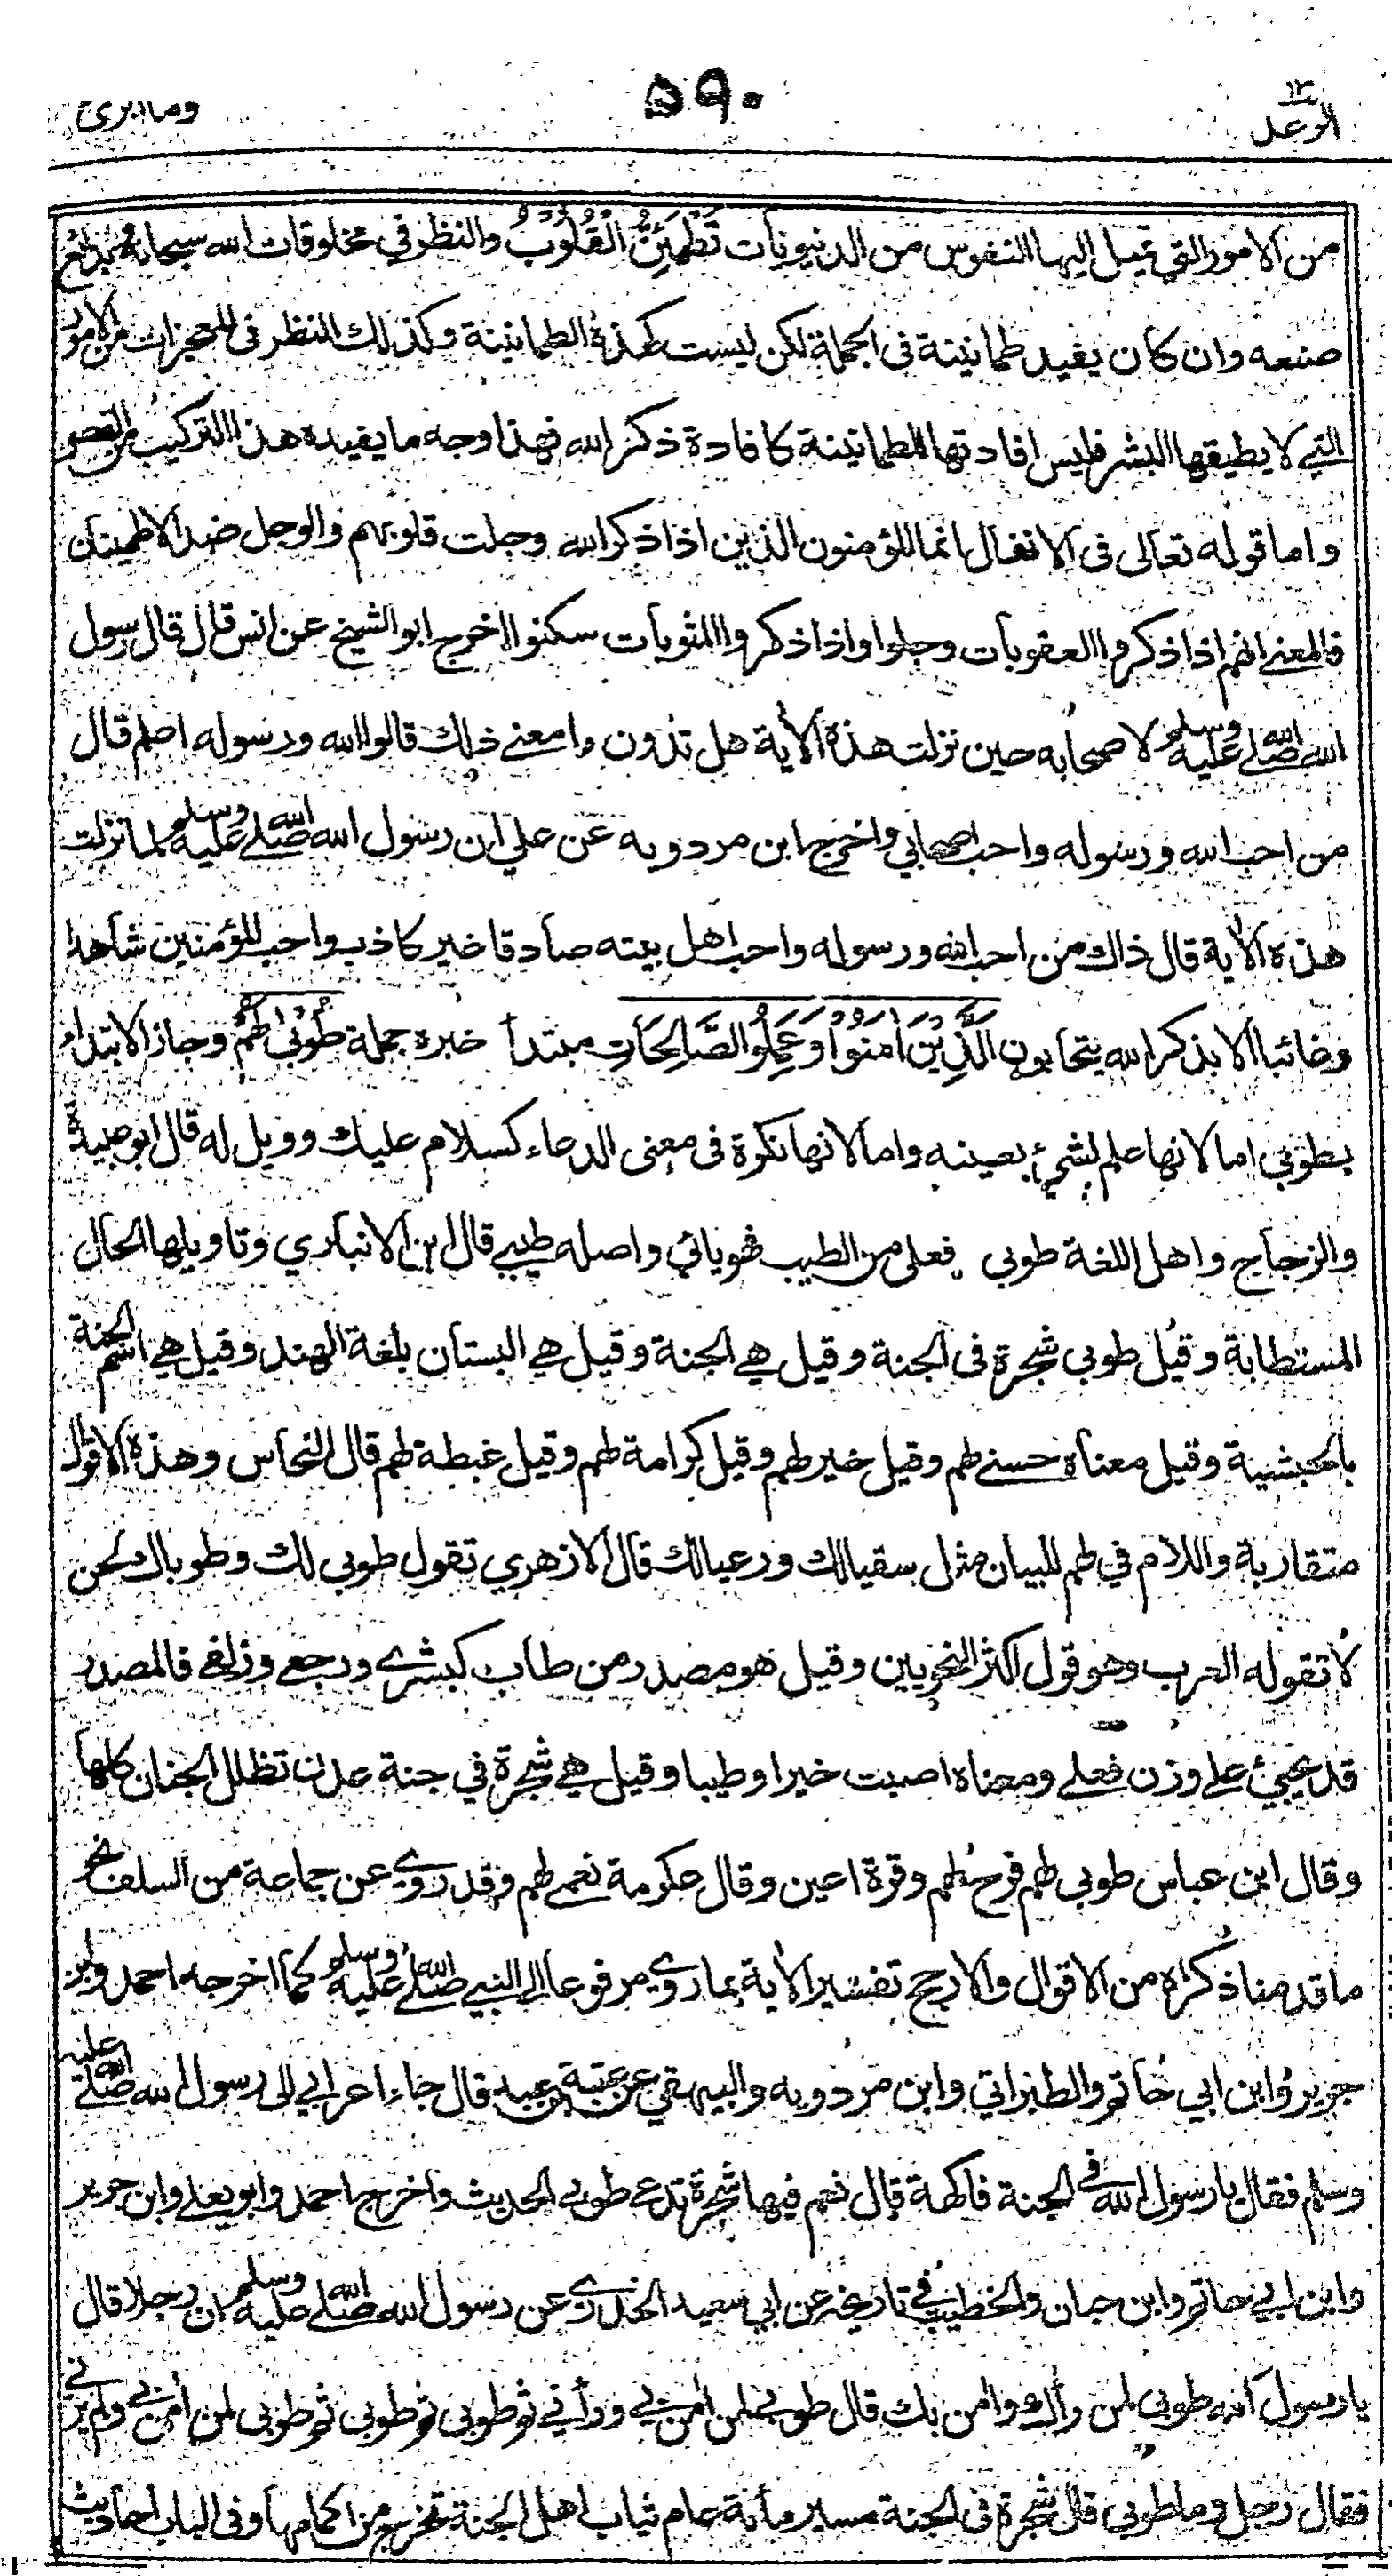 وما ابرئ ٥٩٠ الرعد ١٣
من الامور التي تميل اليها النفوس من الدنيويات تَطْمَئِنُّ الْقُلُوْبُ والنظر في مخلوقات الله سبحانه وبدائع
صنعه وان كان يفيد طمانينة فى الجملة لكن ليست كهذه الطمانينة وكذلك النظر فى المعجزات من الامور
التي لا يطيقها البشر فليس افادتها للطمانينة كافادة ذكر الله فهذا وجه ما يفيده هذا التركيب من القصر
واما قوله تعالى فى الانفال انما المؤمنون الذين اذا ذكر الله وجلت قلوبهم والوجل ضد الاطمينان
فالمعنى انهم اذا ذكروا العقوبات وجلوا واذا ذكروا المثوبات سكنوا اخرج ابو الشيخ عن انس قال قال رسول
الله صلى الله عليه وسلم لاصحابه حين نزلت هذه الأية هل تدرون ما معنى ذلك قالوا الله ورسوله اعلم قال
من احب الله ورسوله واحب اصحابي واخرج ابن مردويه عن علي ان رسول الله صلى الله عليه وسلم لما نزلت
هذه الأية قال ذاك من احب الله ورسوله واحب اهل بيته صادقا غير كاذب واحب المؤمنين شاهدا
وغائبا الا بذكر الله يتحابون الَّذِيْنَ اٰمَنُوْا وَعَمِلُوا الصَّالِحَاتِ مبتدأ خبره جملة طُوْبٰى لَهُمْ وجاز الابتداء
بطوبى اما لانها علم لشيء بعينه واما لانها نكرة فى معنى الدعاء كسلام عليك وويل له قال ابو عبيدة
والزجاج واهل اللغة طوبى فعلى من الطيب فهو يائي واصله طيبى قال ابن الانباري وتاويلها الحال
المستطابة وقيل طوبى شجرة فى الجنة وقيل هي الجنة وقيل هي البستان بلغة الهند وقيل هي اسم الجنة
بالحبشية وقيل معناه حسنى لهم وقيل خير لهم وقيل كرامة لهم وقيل غبطة لهم قال النحاس وهذه الاقوال
متقاربة واللام في لهم للبيان مثل سقيا لك ورعيا لك قال الازهري تقول طوبى لك وطوباك لحن
لا تقوله العرب وهو قول اكثر النحويين وقيل هو مصدر من طاب كبشرى ورجعى وزلفى فالمصدر
قد يجيئ على وزن فعلى ومعناه اصبت خيرا وطيبا وقيل هي شجرة في جنة عدن تظلل الجنان كلها
وقال ابن عباس طوبى لهم فرح لهم وقرة اعين وقال عكرمة نعمى لهم وقد روي عن جماعة من السلف نحو
ما قدمنا ذكراه من الاقوال والارجح تفسير الأية بما روي مرفوعا الى النبي صلى الله عليه وسلم كما اخرجه احمد وابن
جرير وابن ابي حاتم والطبراني وابن مردويه والبيهقي عن عتبة بن عبد قال جاء اعرابي الى رسول الله صلى الله عليه
وسلم فقال يا رسول الله في الجنة فاكهة قال نعم فيها شجرة تدعى طوبى الحديث واخرج احمد وابو يعلى وابن جرير
وابن ابي حاتم وابن حبان والخطيب في تاريخه عن ابي سعيد الخدري عن رسول الله صلى الله عليه وسلم ان رجلا قال
يا رسول الله طوبى لمن رأك وامن بك قال طوبى لمن امن بي ورأني ثم طوبى ثم طوبى ثم طوبى لمن امن بي ولم يرني
فقال رجل وما طوبى قال شجرة فى الجنة مسيرة مأئة عام ثياب اهل الجنة تخرج من اكمامها وفى الباب احاديث